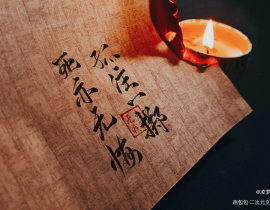 孤注一掷
死亦无悔
@凌梦
燕包包·二次元文